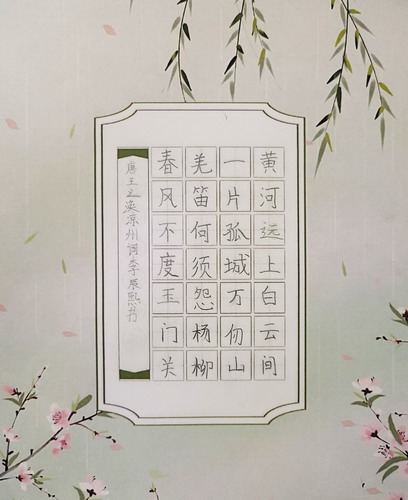 黄河远上白云间
一片孤城万仞山
羌笛何须怨杨柳
春风不度玉门关
唐王之涣凉州词李展熙书